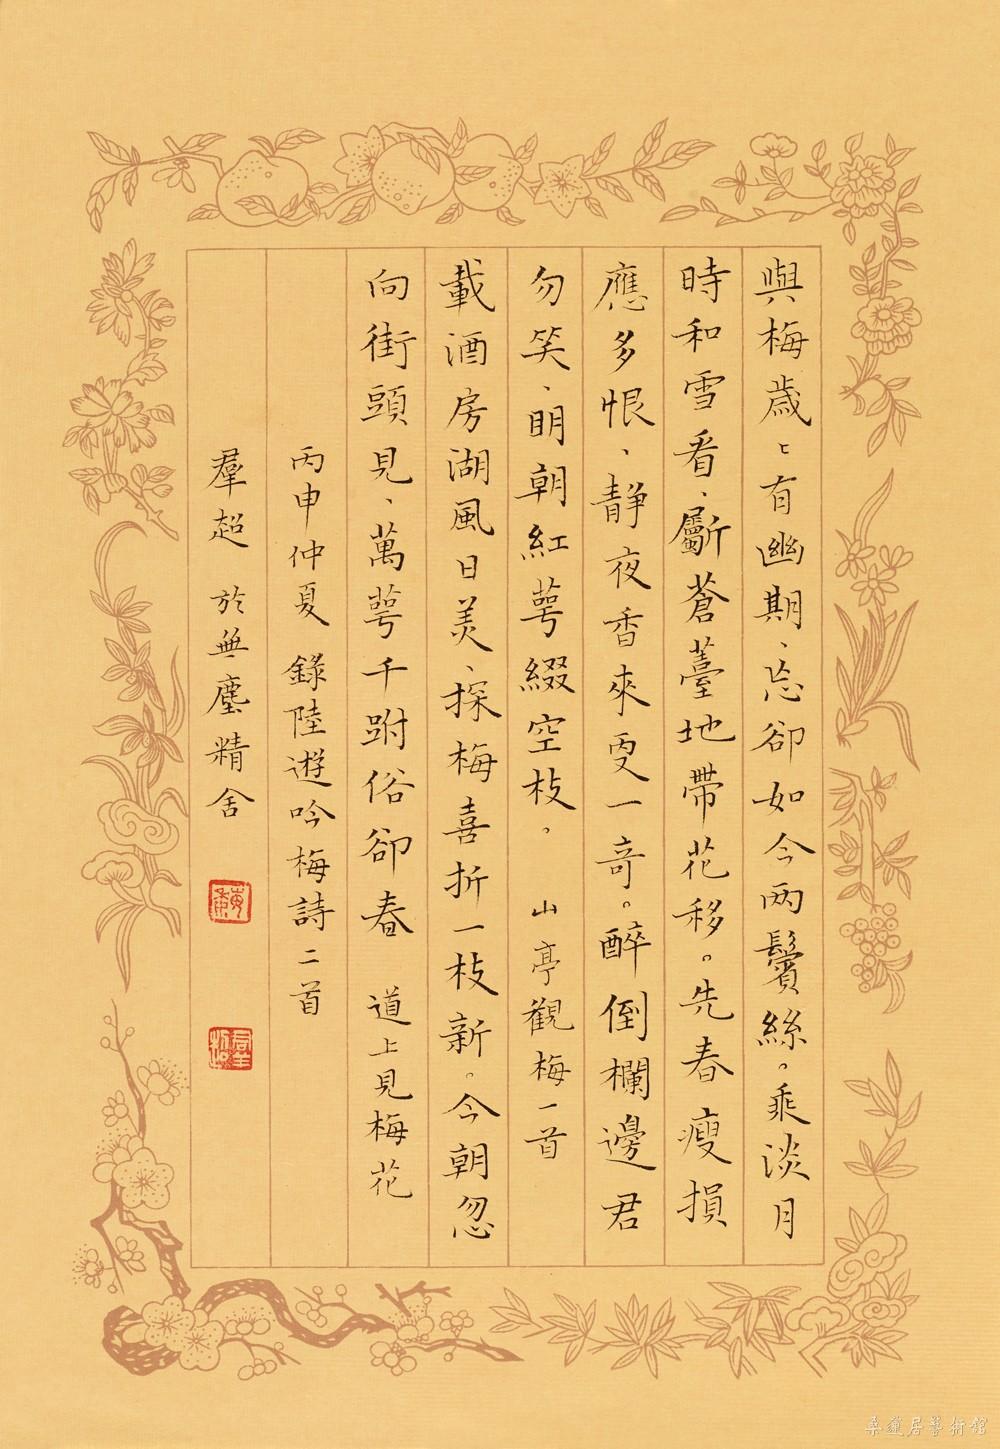 與梅歲〻有幽期、忘卻如今两鬢絲。乘淡月
時和雪看、斸蒼薹地帶花移。先春瘦損
應多恨、静夜香來更一竒。醉倒欄邊君
勿笑、明朝紅萼綴空枝。 山亭觀梅一首
載酒房湖風日美、探梅喜折一枝新。今朝忽
向街頭見、萬萼千跗俗卻春 道上見梅花
丙申仲夏 錄陸遊吟梅詩二首
羣超 於無塵精舍
桑蓮居藝術館